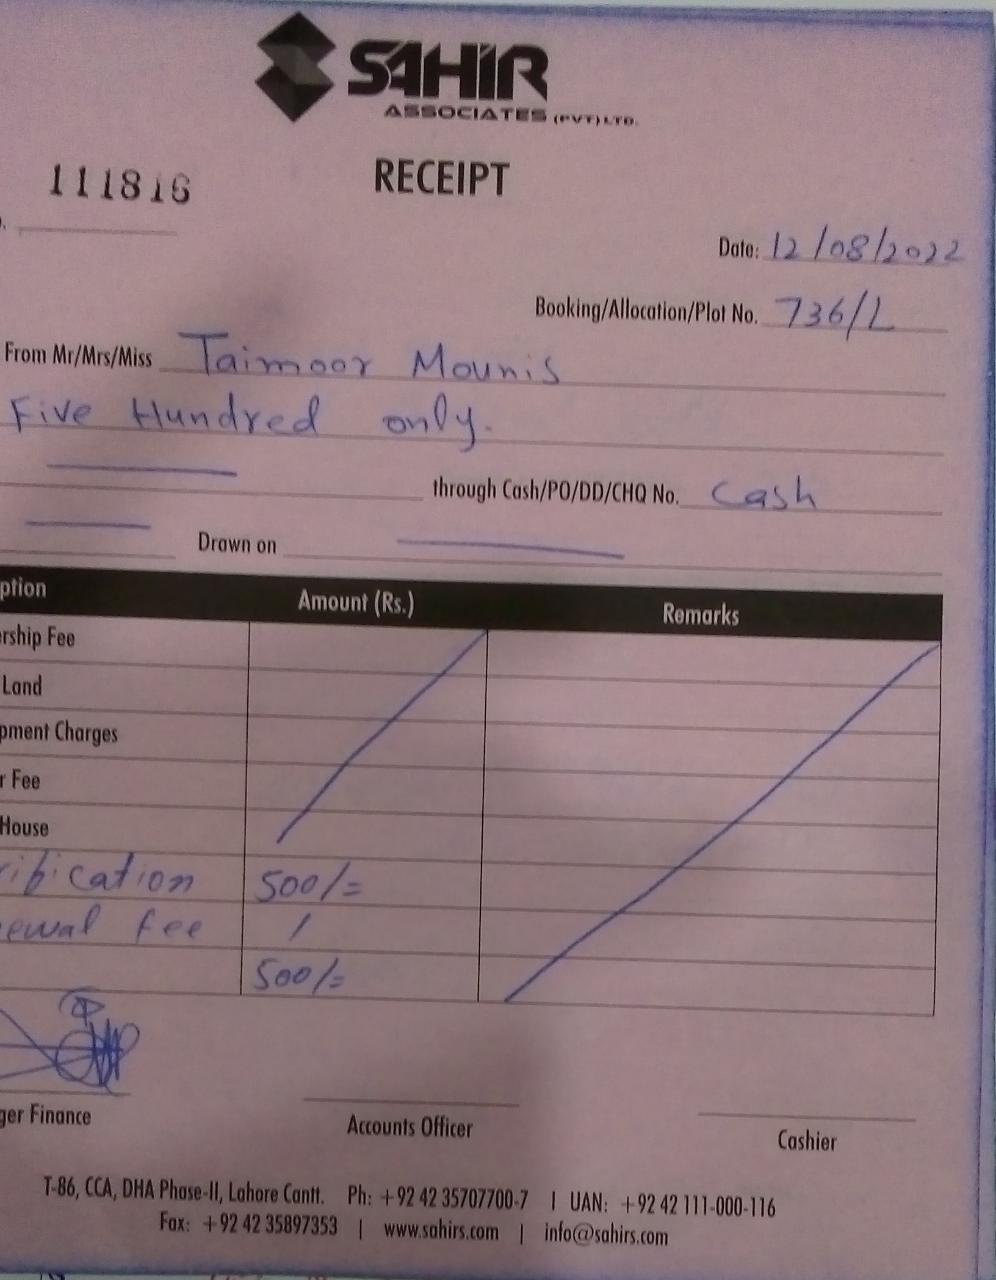 SAHIR
ASSOCIATES (PVT) LTD.
RECEIPT
111816
Date: 12/08/2022
Booking/Allocation/Plot No. 736/L
From Mr/Mrs/Miss Taimoor Mounis
Five Hundred only.
through Cash/PO/DD/CHQ No. Cash
Drawn on
ption Amount (Rs.) Remarks
ership Fee
Land
pment Charges
r Fee
House
rification 500/=
ewal fee /
500/=
ger Finance Accounts Officer Cashier
T-86, CCA, DHA Phase-II, Lahore Cantt. Ph: +92 42 35707700-7 | UAN: +92 42 111-000-116
Fax: +92 42 35897353 | www.sahirs.com | info@sahirs.com